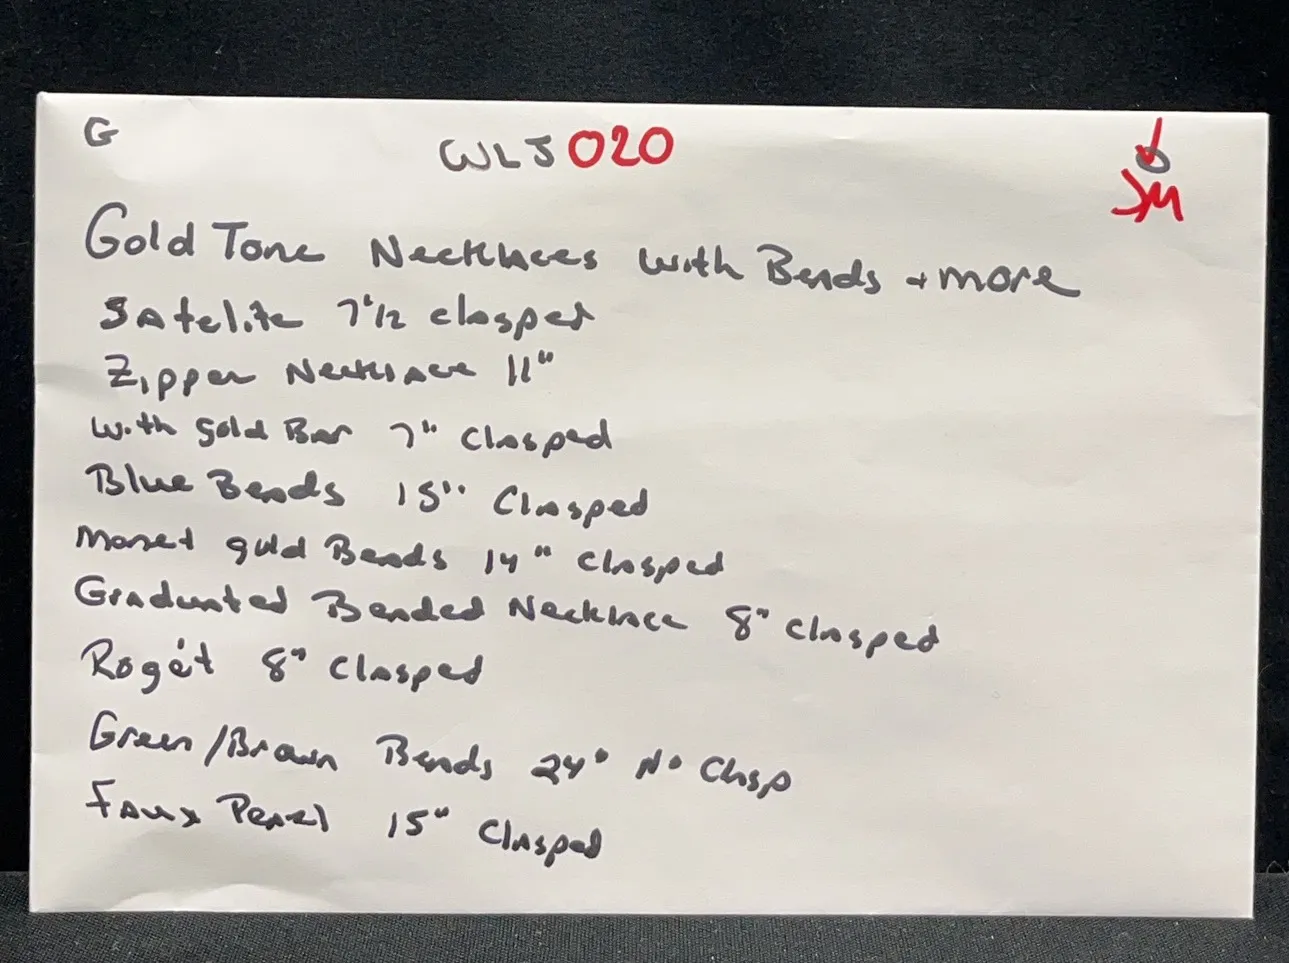 G
WLJ020
JM
Gold Tone Necklaces with Beads + more
Satelite 7 1/2 clasped
Zipper Necklace 11"
with gold Bar 7" Clasped
Blue Beads 15" Clasped
Monet gold Beads 14" Clasped
Graduated Beaded Necklace 8" Clasped
Rogét 8" Clasped
Green/Brown Beads 24" No Clasp
Faux Pearl 15" Clasped